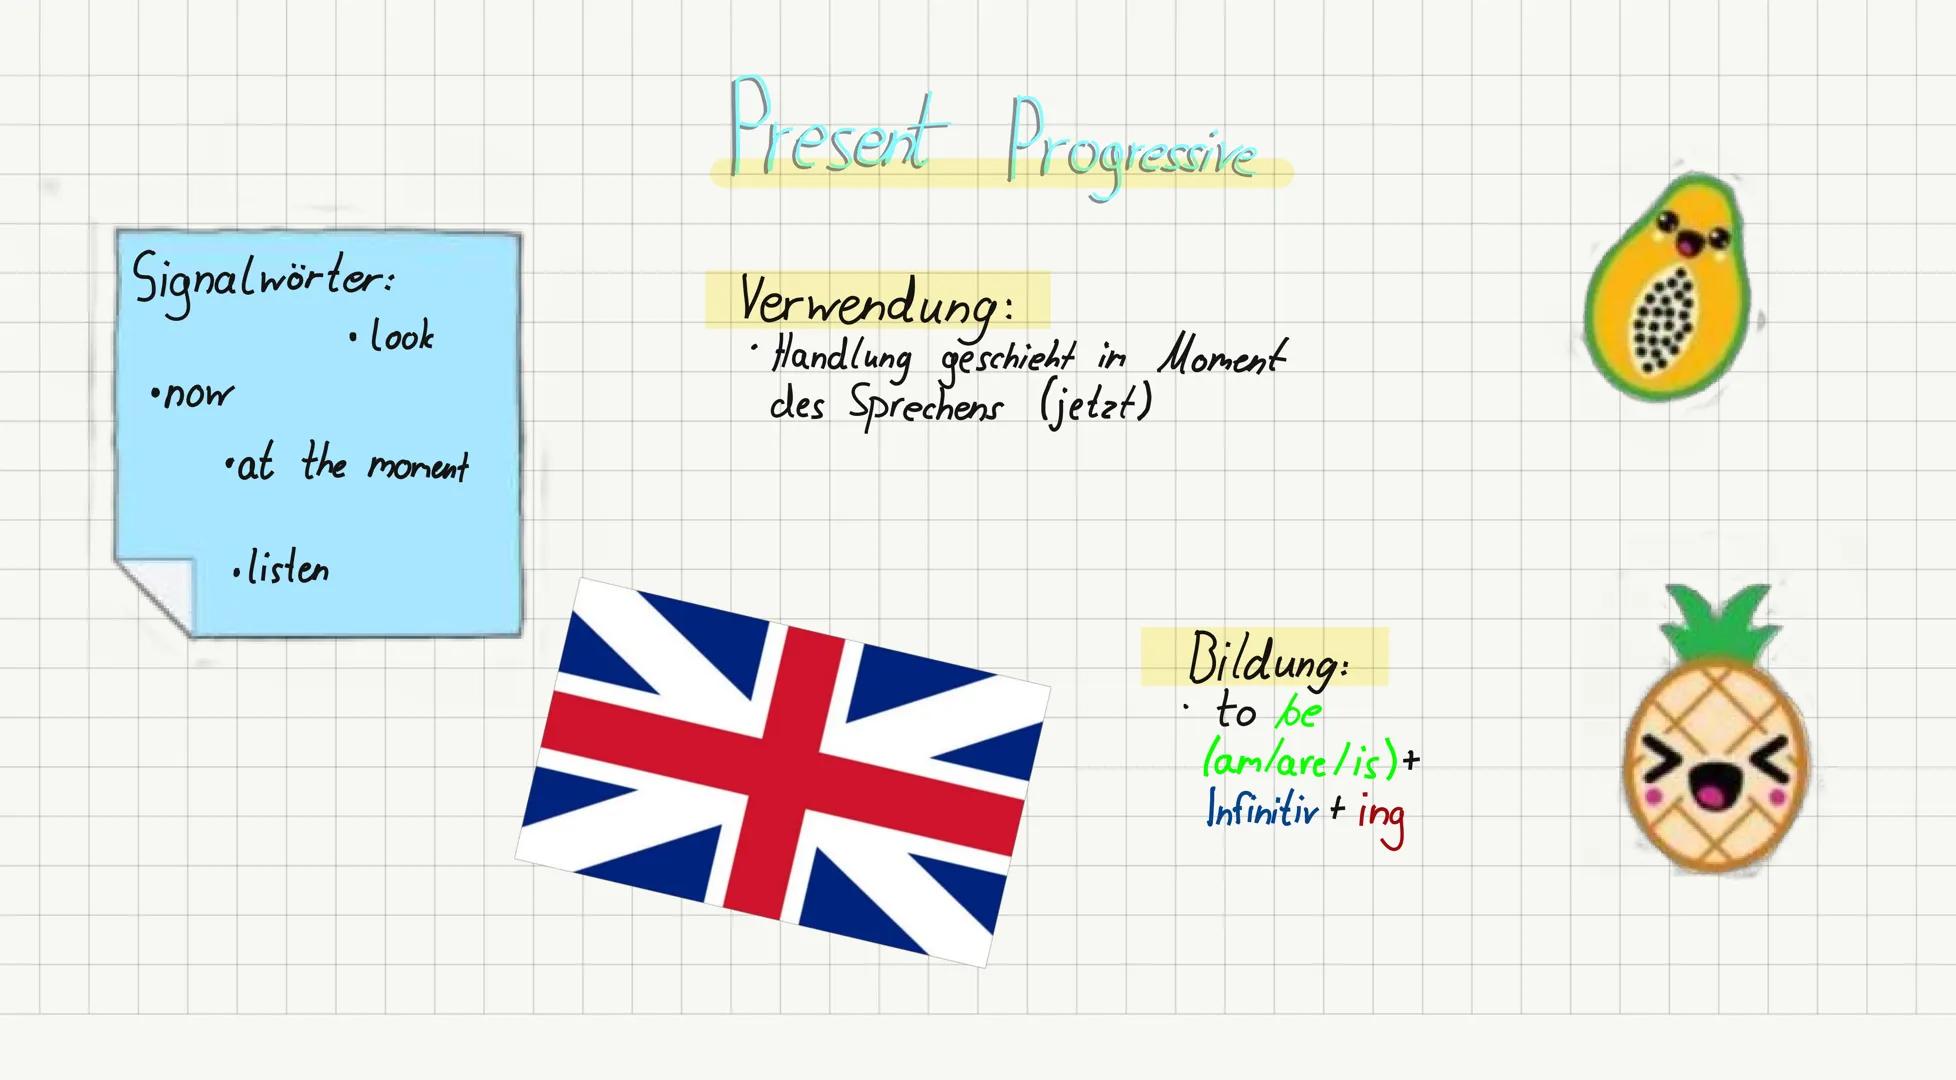 Present Progressive
Signalwörter:
• look
• now
• at the moment
• listen
Verwendung:
• Handlung geschieht im Moment
des Sprechens (jetzt)
Bildung:
• to be
(am/are/is)+
Infinitiv + ing